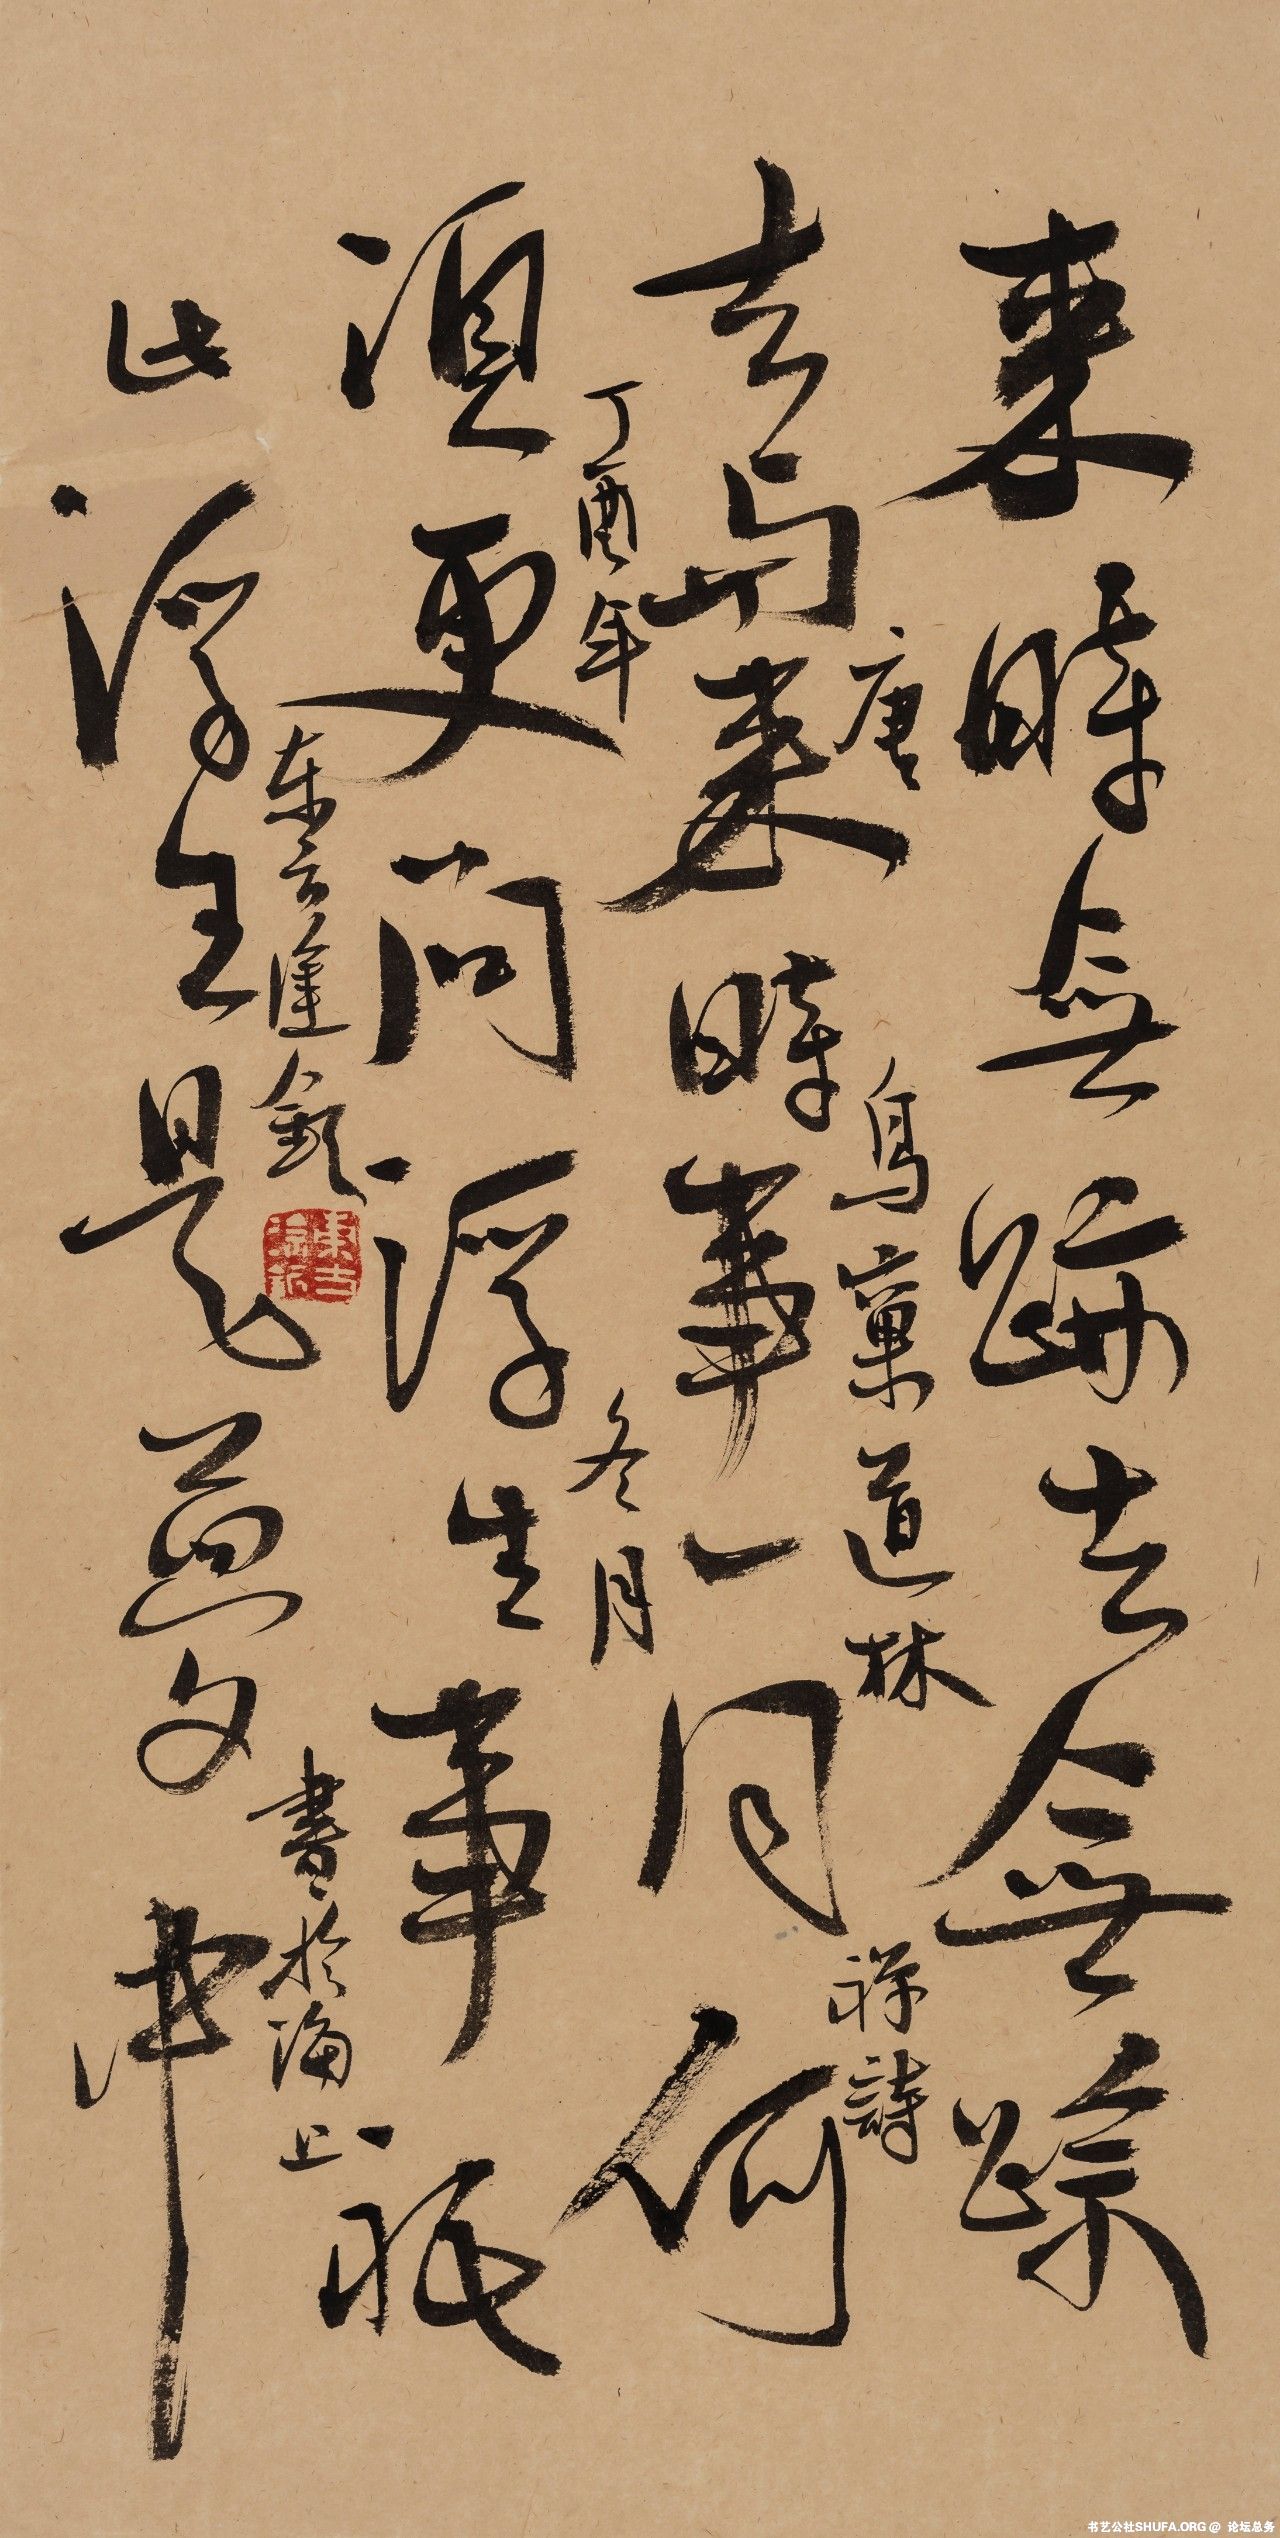 来時無跡去無踪
去與来時事一同
何須更問浮生事祗
此浮生是夢中
唐鳥窠道林禅詩
丁酉年冬月
東方
書於海上
书艺公社SHUFA.ORG @ 论坛总务